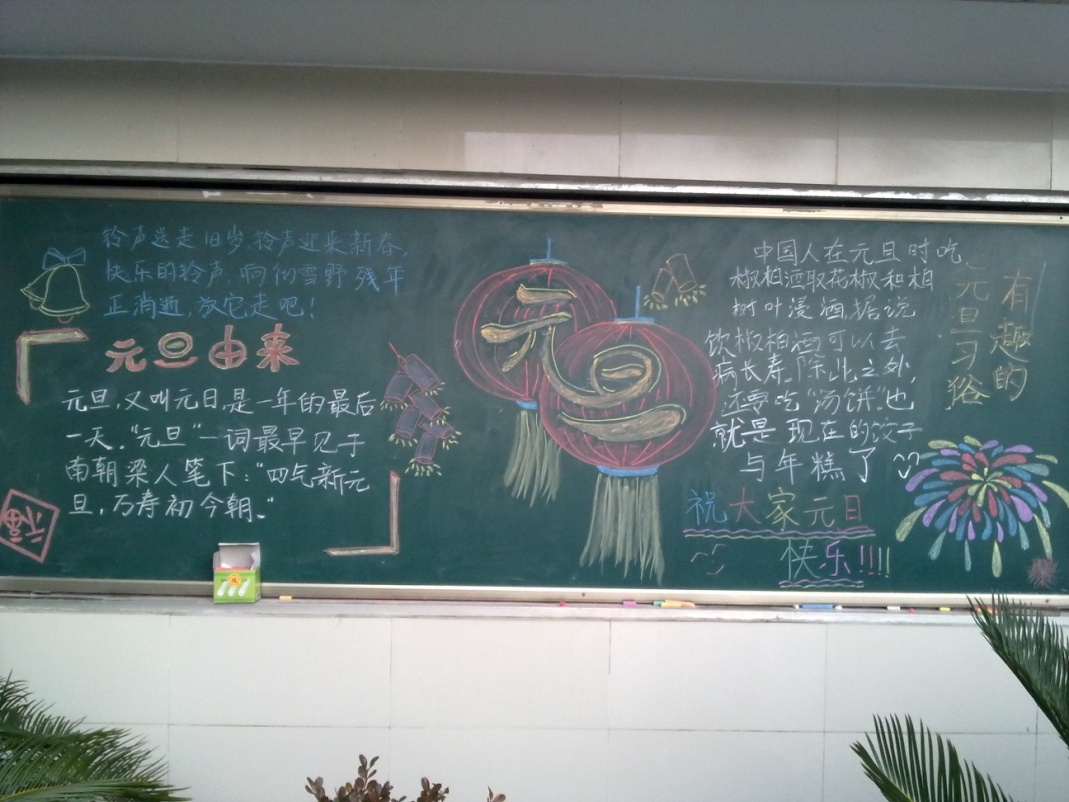 铃声送走旧岁,铃声迎来新春,
快乐的铃声,响彻雪野,残年
正消逝,放它走吧!
元旦由来
元旦,又叫元日,是一年的最后
一天。"元旦"一词最早见于
南朝梁人笔下:"四气新元
旦,万寿初今朝。"
福
元旦
中国人在元旦时吃
椒柏酒取花椒和柏
树叶浸酒,据说
饮椒柏酒可以去
病长寿,除此之外,
还要吃"汤饼"也
就是现在的饺子
与年糕了
有趣的
元旦习俗
祝大家元旦
快乐!!!!